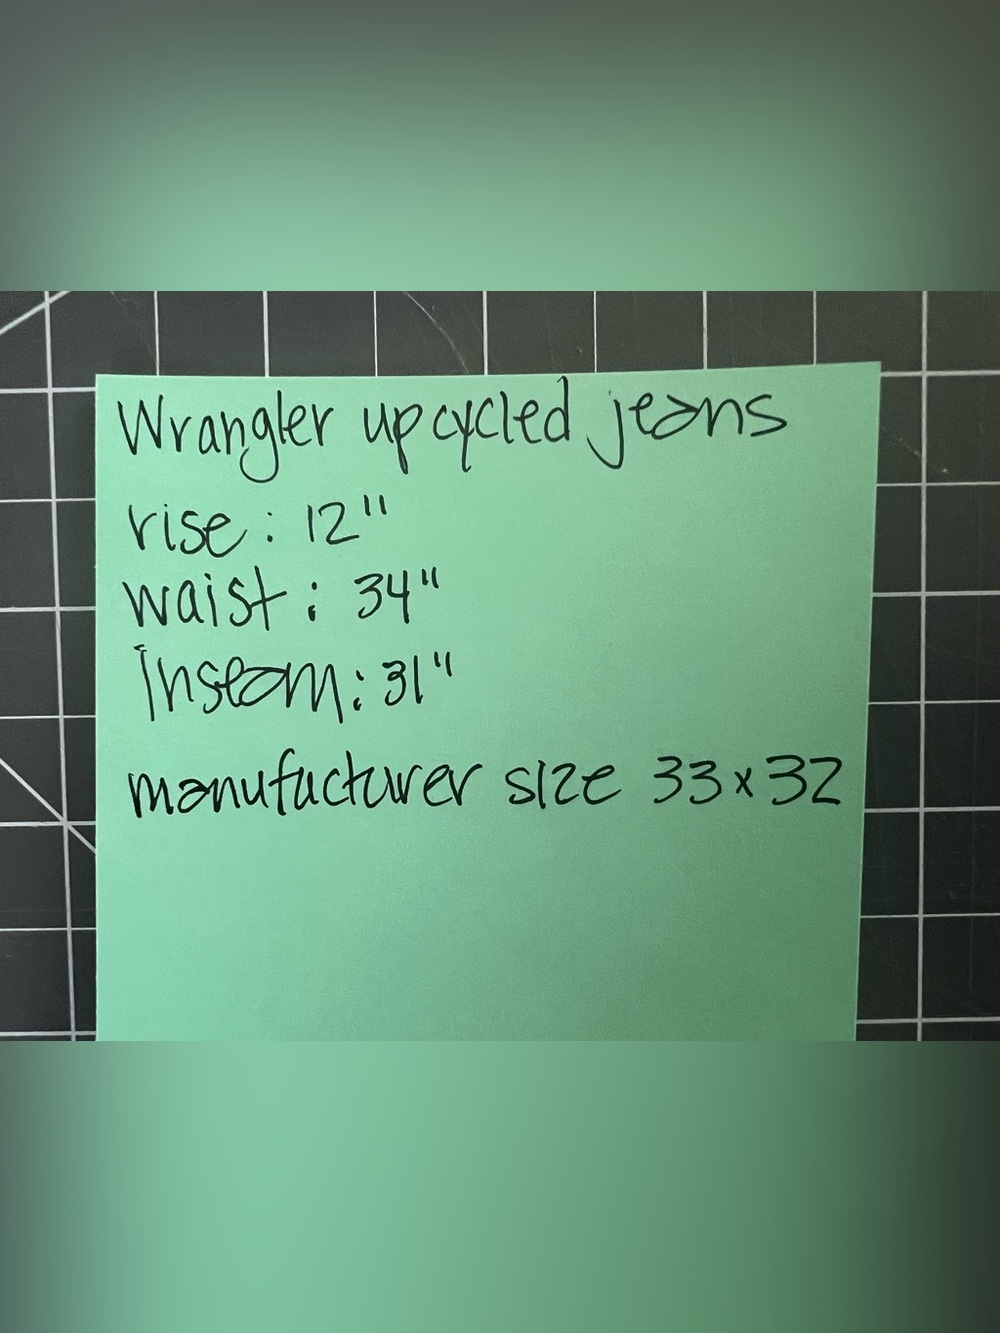 Wrangler upcycled jeans
rise: 12"
waist: 34"
Inseam: 31"
manufacturer size 33x32